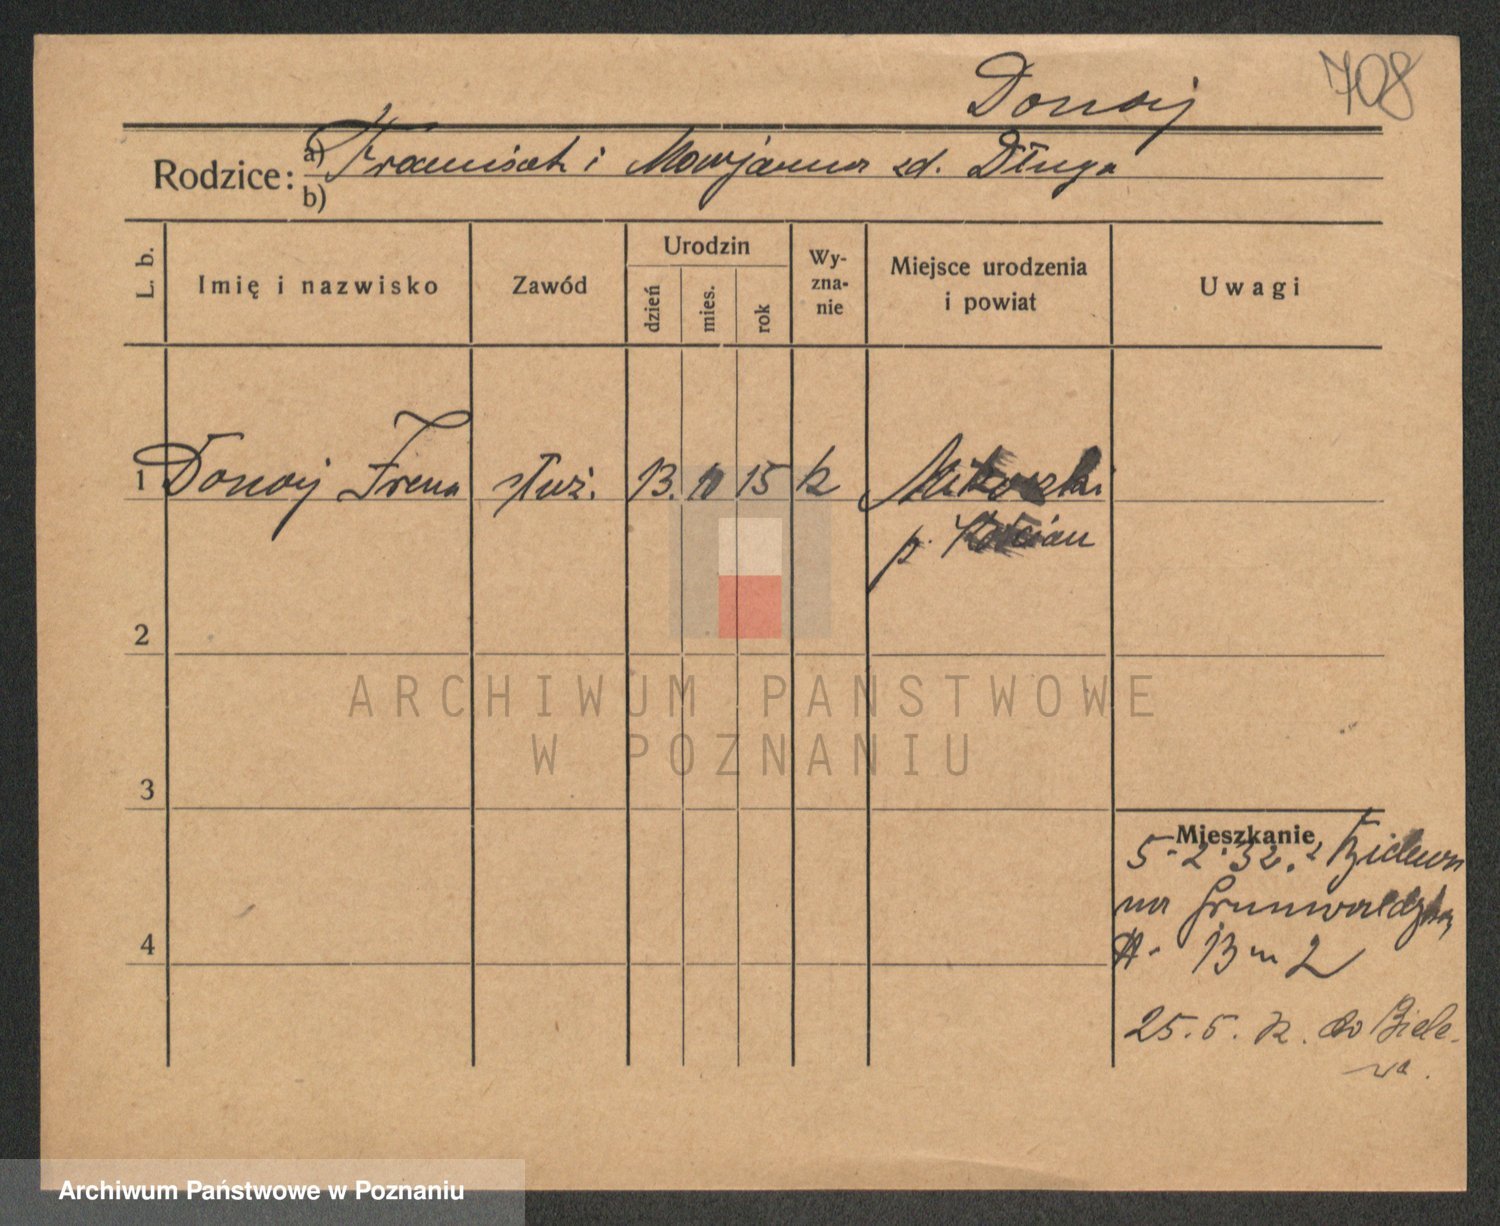 Donaj
708
Rodzice: a) Franciszek i Marjanna zd. Długa
b)
L. b.
Imię i nazwisko
Zawód
Urodzin
dzień
mies.
rok
Wy-
zna-
nie
Miejsce urodzenia
i powiat
Uwagi
1 Donaj Irena służ. 13. 10 15 k Mikoszki
p. Kościan
2
3
4
Mieszkanie
5.2.32. z Bielewa
na Grunwaldzką
13 m 2
25.5. do Biele-
wa.
ARCHIWUM PAŃSTWOWE
W POZNANIU
Archiwum Państwowe w Poznaniu